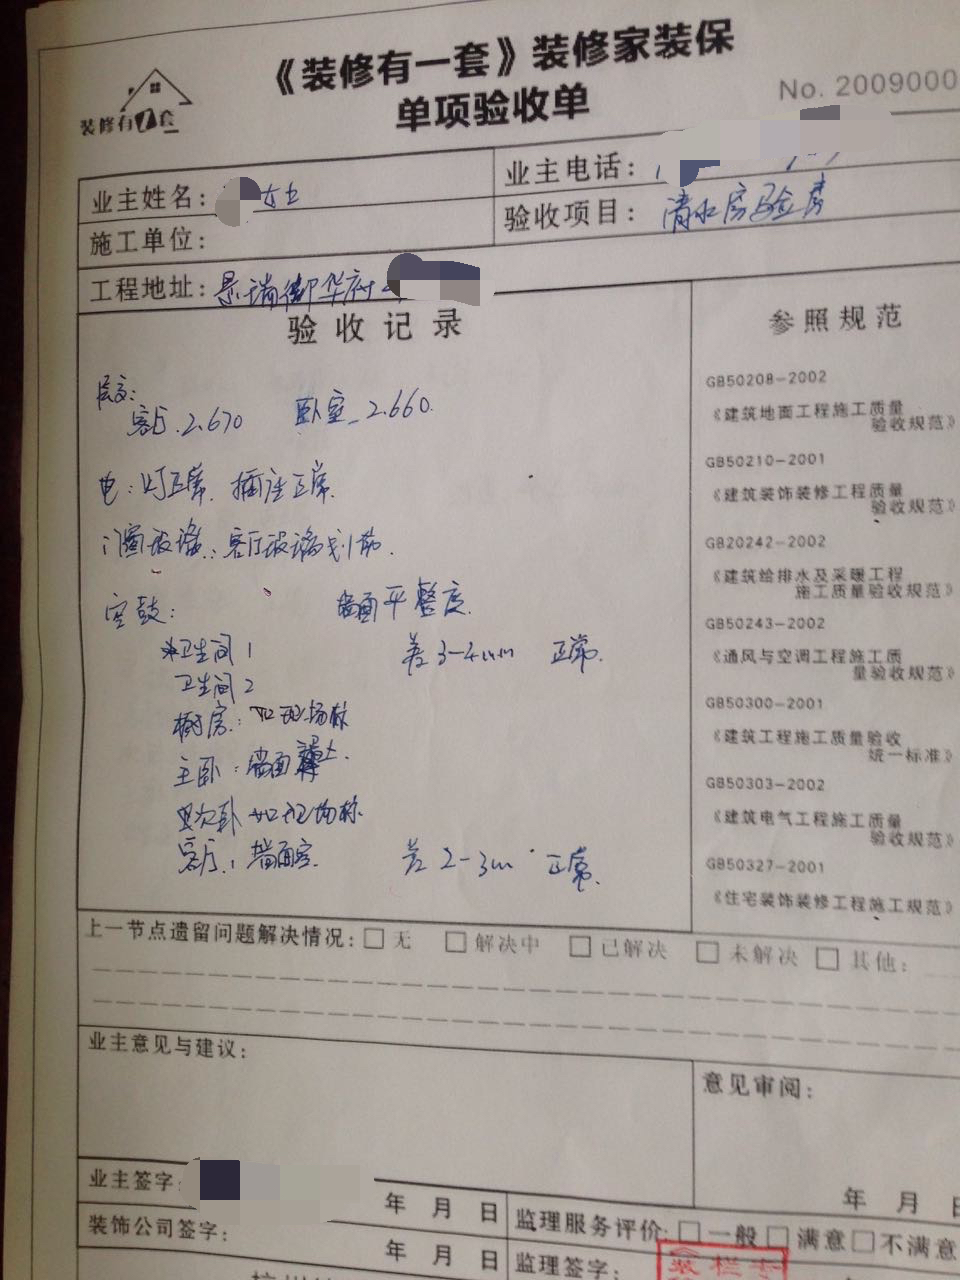 《装修有一套》装修家装保
单项验收单
装修有1套
No. 2009000
业主姓名： 女士
业主电话：
施工单位：
验收项目：清水房验房
工程地址：景瑞御华府
验收记录
参照规范
层高：
客厅 2.670 卧室 2.660
电：灯正常 插座正常
门窗玻璃：客厅玻璃划痕
空鼓： 墙面平整度
卫生间1 差3-4mm 正常
卫生间2
厨房：如现场标
主卧：墙面
次卧 如现场标
客厅：墙面空 差2-3m 正常
GB50208-2002
《建筑地面工程施工质量
验收规范》
GB50210-2001
《建筑装饰装修工程质量
验收规范》
GB20242-2002
《建筑给排水及采暖工程
施工质量验收规范》
GB50243-2002
《通风与空调工程施工质
量验收规范》
GB50300-2001
《建筑工程施工质量验收
统一标准》
GB50303-2002
《建筑电气工程施工质量
验收规范》
GB50327-2001
《住宅装饰装修工程施工规范》
上一节点遗留问题解决情况：□无 □解决中 □已解决 □未解决 □其他：
业主意见与建议：
意见审阅：
业主签字：
年 月 日
年 月 日
装饰公司签字：
年 月 日
监理服务评价：□一般 □满意 □不满意
监理签字：